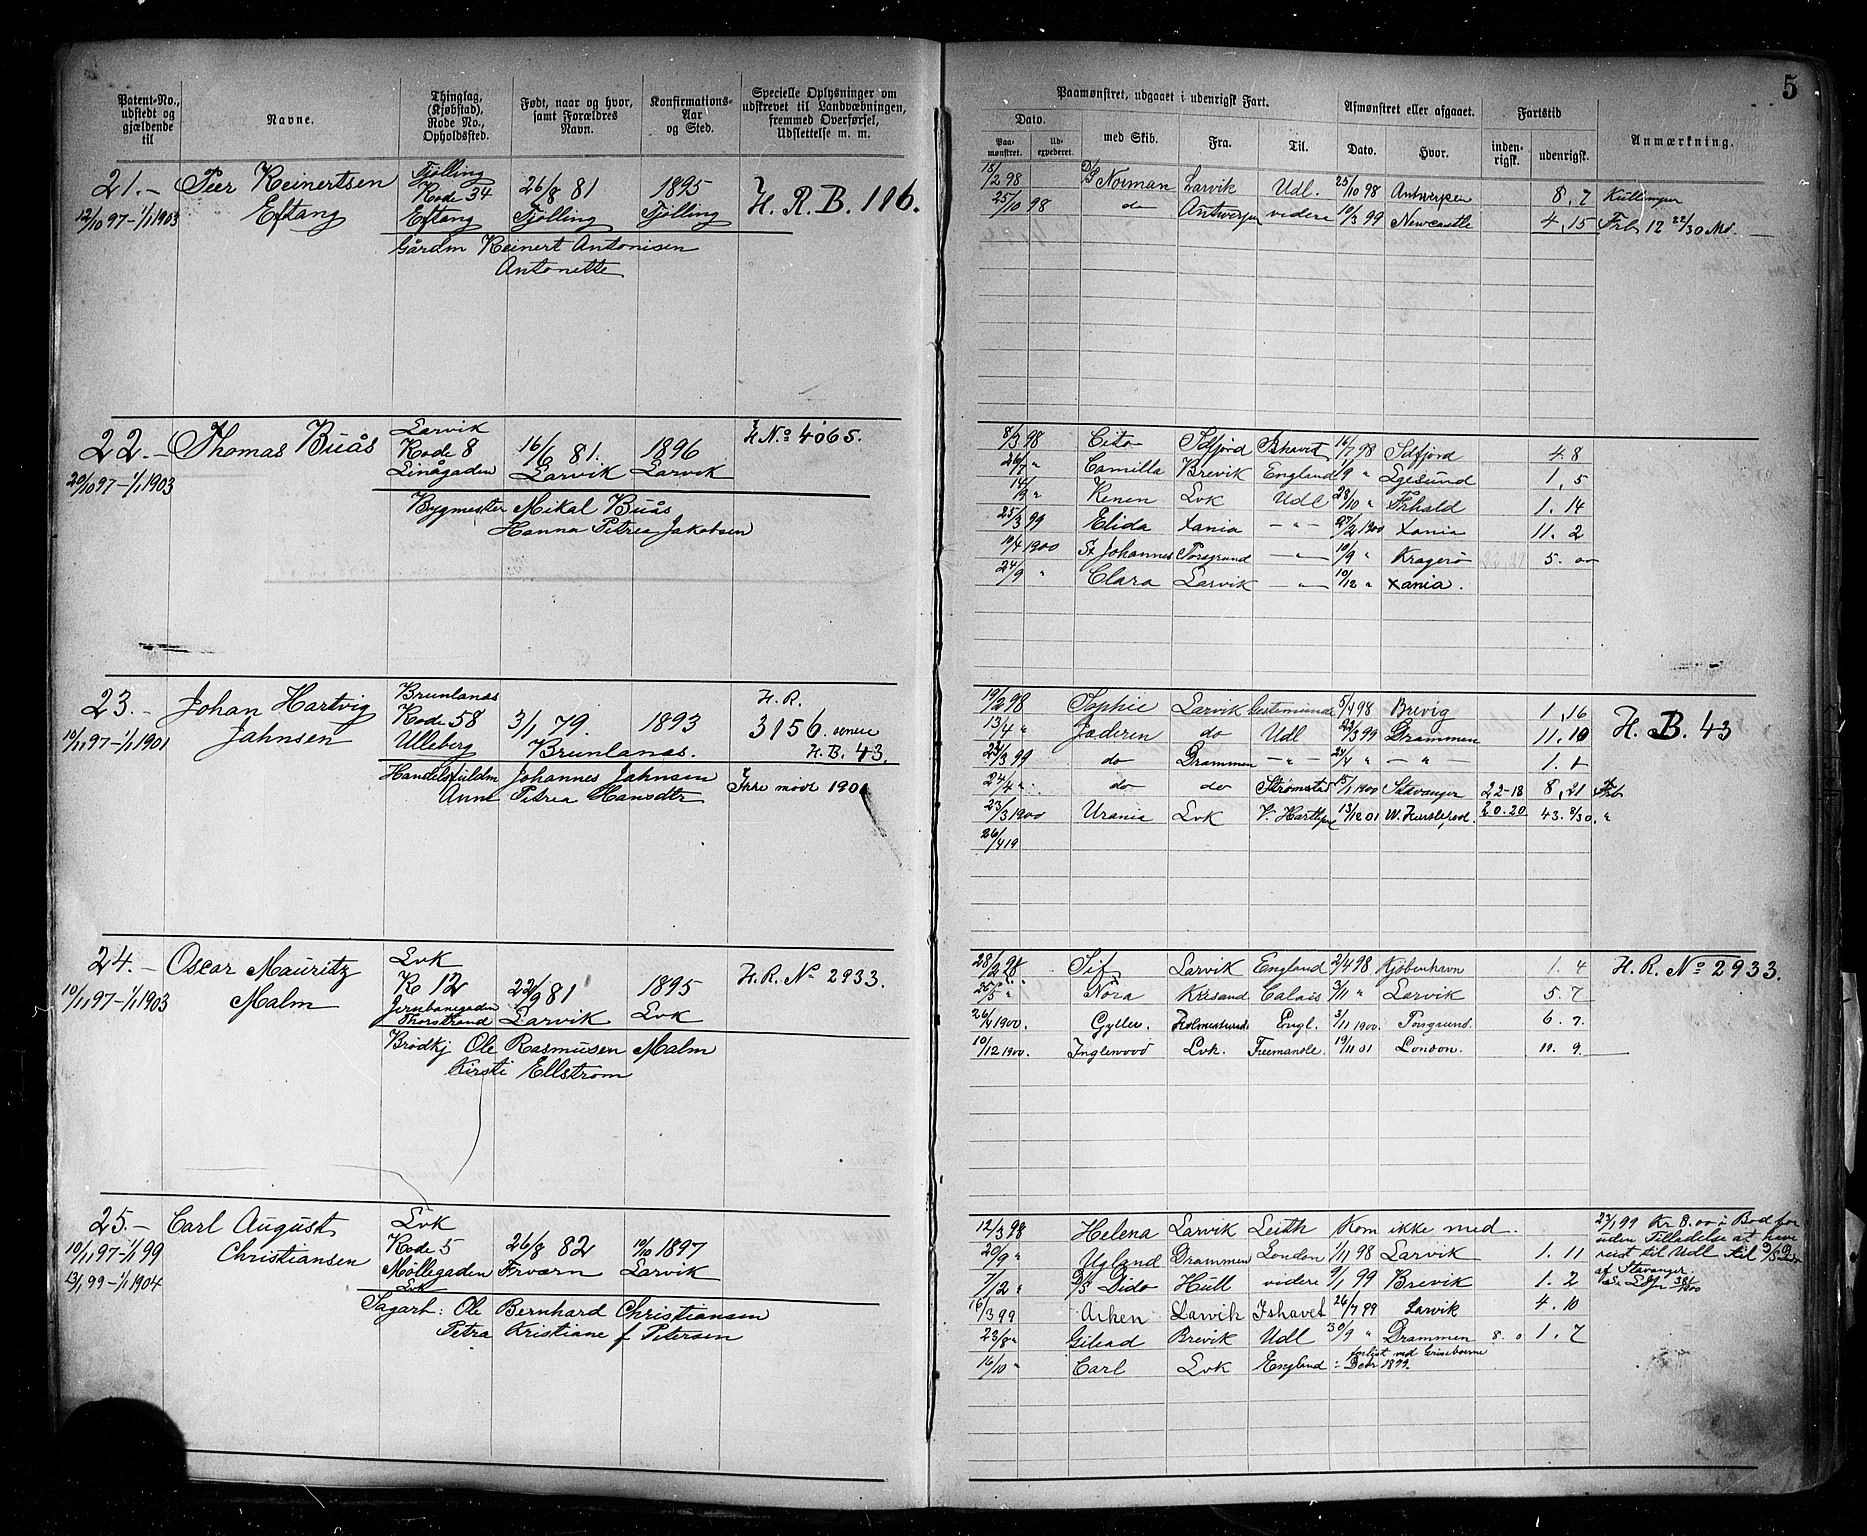 5
Patent-No., udstedt og gjældende til
Navne.
Thinglag, (Kjøbstad), Rode No., Opholdssted.
Født, naar og hvor, samt Forældres Navn.
Konfirmations-Aar og Sted.
Specielle Oplysninger om udskrevet til Landværbningen, fremmed Overførsel, Udslettelse m. m.
Paamønstret, udgaaet i udenrigsk Fart.
Dato.
Paa-mønstret.
Ud-expederet.
med Skib.
Fra.
Til.
Afmønstret eller afgaaet.
Dato.
Hvor.
Fartstid
inden-rigsk.
udenrigsk.
Anmærkning.
21.- Peer Reinertsen Eftang
12/10 97 - 1/1 1903
Tjølling Rode 34 Eftang
26/8 81 Tjølling
1895 Tjølling
H. R. B. 116.
Gårdm Reinert Antonisen
Antonette
18/2 98 D/S Norman Larvik Udl. 25/10 98 Antwerpen 8, 7 Kullemper
25/10 98 do Antwerpen videre 10/3 99 Newcastle 4, 15 Frb 12 22/30 Md.
22.- Thomas Buås
20/10 97 - 1/1 1903
Larvik Rode 8 Linågaden
16/6 81. Larvik
1896 Larvik
H No 4065.
Bygmester Mikal Buås
Hanna Petrea Jakobsen
8/3 98 Cito Sdfjord Ishavet 16/7 98 Sdfjord 4 8
26/7 " Camilla Brevik England 1/9 " Lgesund 1, 5
14/9 " Kenen Lvk Udl 28/10 " Frhald 1. 14
25/3 99 Elida Xania - " - 27/2 1900 Xania 11. 2
10/4 1900 St Johannes Porsgrund - " - 10/9 " Kragerø 5. oo
24/9 " Clara Larvik - " - 10/12 " Xania.
23.- Johan Hartvig Jahnsen
10/11 97 - 1/1 1901
Brunlanas Rode 58 Ulleberg
3/1 79. Brunlanas.
1893
H. R.
3156 senere
H. B. 43.
Ikke mødt 1901
Handelsfuldm Johannes Jahnsen
Anne Petrea Hansdtr
19/2 98 Sophie Larvik Gestemunde 5/4 98 Brevig 1, 16 H. B. 43
13/4 " Jæderen do Udl 23/3 99 Drammen 11. 10
23/3 99 do Drammen - " - 24/4 " - " - 1. 1
24/4 " do do Strømstad 15/1 1900 Stavanger 22-18 8, 21 Frb
23/3 1900 Urania Lvk V. Hartlpol 13/12 01 20.20 43. 8/30. "
26/4 19
24.- Oscar Mauritz Malm
10/11 97 - 1/1 1903
Lvk R 12 Jernbanegaden Thorstrand
22/9 81 Larvik
1895 Lvk
H. R. No 2933.
Brødkj Ole Rasmusen Malm
Kirsti Ellstrøm
28/2 98 Sif Larvik England 2/4 98 Kjøbenhavn 1. 4 H. R. No 2933.
25/5 " Nora Krsand Calais 3/11 " Larvik 5. 7
26/4 1900. Gyller. Holmestrand Engl. 3/11 1900. Porsgrund. 6. 7.
10/12 1900. Inglewood Lvk. Freemantle. 19/11 01 London. 11. 9.
25.- Carl August Christiansen
10/11 97 - 1/1 99
13/1 99 - 1/1 1904
Lvk Rode 5 Møllegaden Lvk
26/8 82 Tværn
10/10 1897 Larvik
Sagarb: Ole Bernhard Christiansen
Petra Kristiane f Petersen
12/3 98 Helena Larvik Leith Kom ikke med.
20/9 " Ugland Drammen London 1/11 98 Larvik 1. 11
7/12 " D/S Dido Hull videre 9/1 99 Brevik 1. 2
16/3 99 Arken Larvik Ishavet 26/7 99 Larvik 4. 10
23/8 " Gilead Brevik Udl 30/9 " Drammen 8. 0 1. 7
16/10 " Carl Lvk England : Debr 1899.
forlist med
23/1 99 Kr 8.00 i Bod for
uden Tilladelse at have
reist til Udl til
af Stavanger.